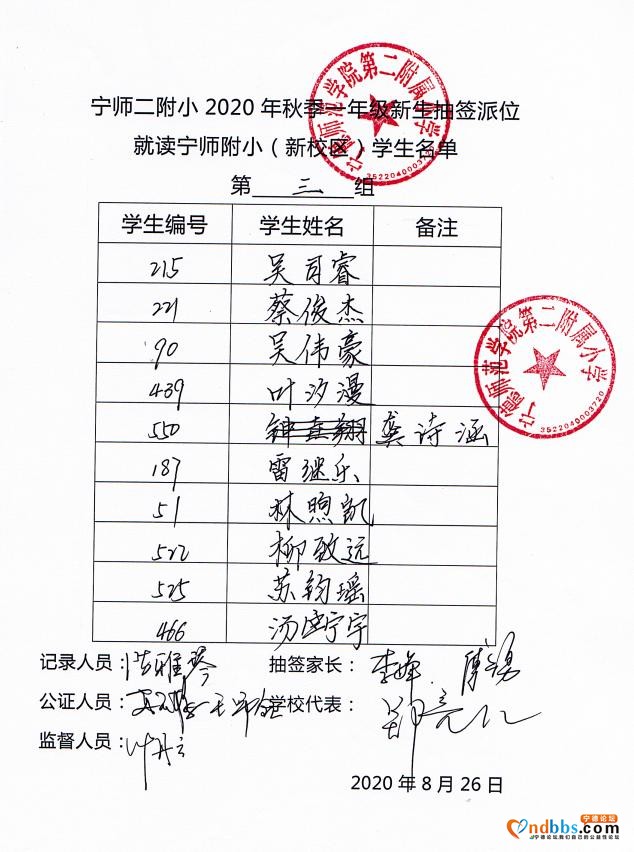 宁师二附小 2020 年秋季一年级新生抽签派位
就读宁师附小（新校区）学生名单
第 三 组
学生编号 学生姓名 备注
215 吴司睿
221 蔡俊杰
90 吴伟豪
439 叶汐漫
550 钟直翔 龚诗涵
187 雷继乐
51 林照凯
522 柳致远
525 苏钧瑶
466 汤宁宇
记录人员： 抽签家长：
公证人员： 学校代表：
监督人员：
2020 年 8 月 26 日
宁德师范学院第二附属小学
3522040003720
宁德师范学院第二附属小学
3522040003720
宁德论坛
ndbbs.com
宁德论坛我们自己的公益性论坛